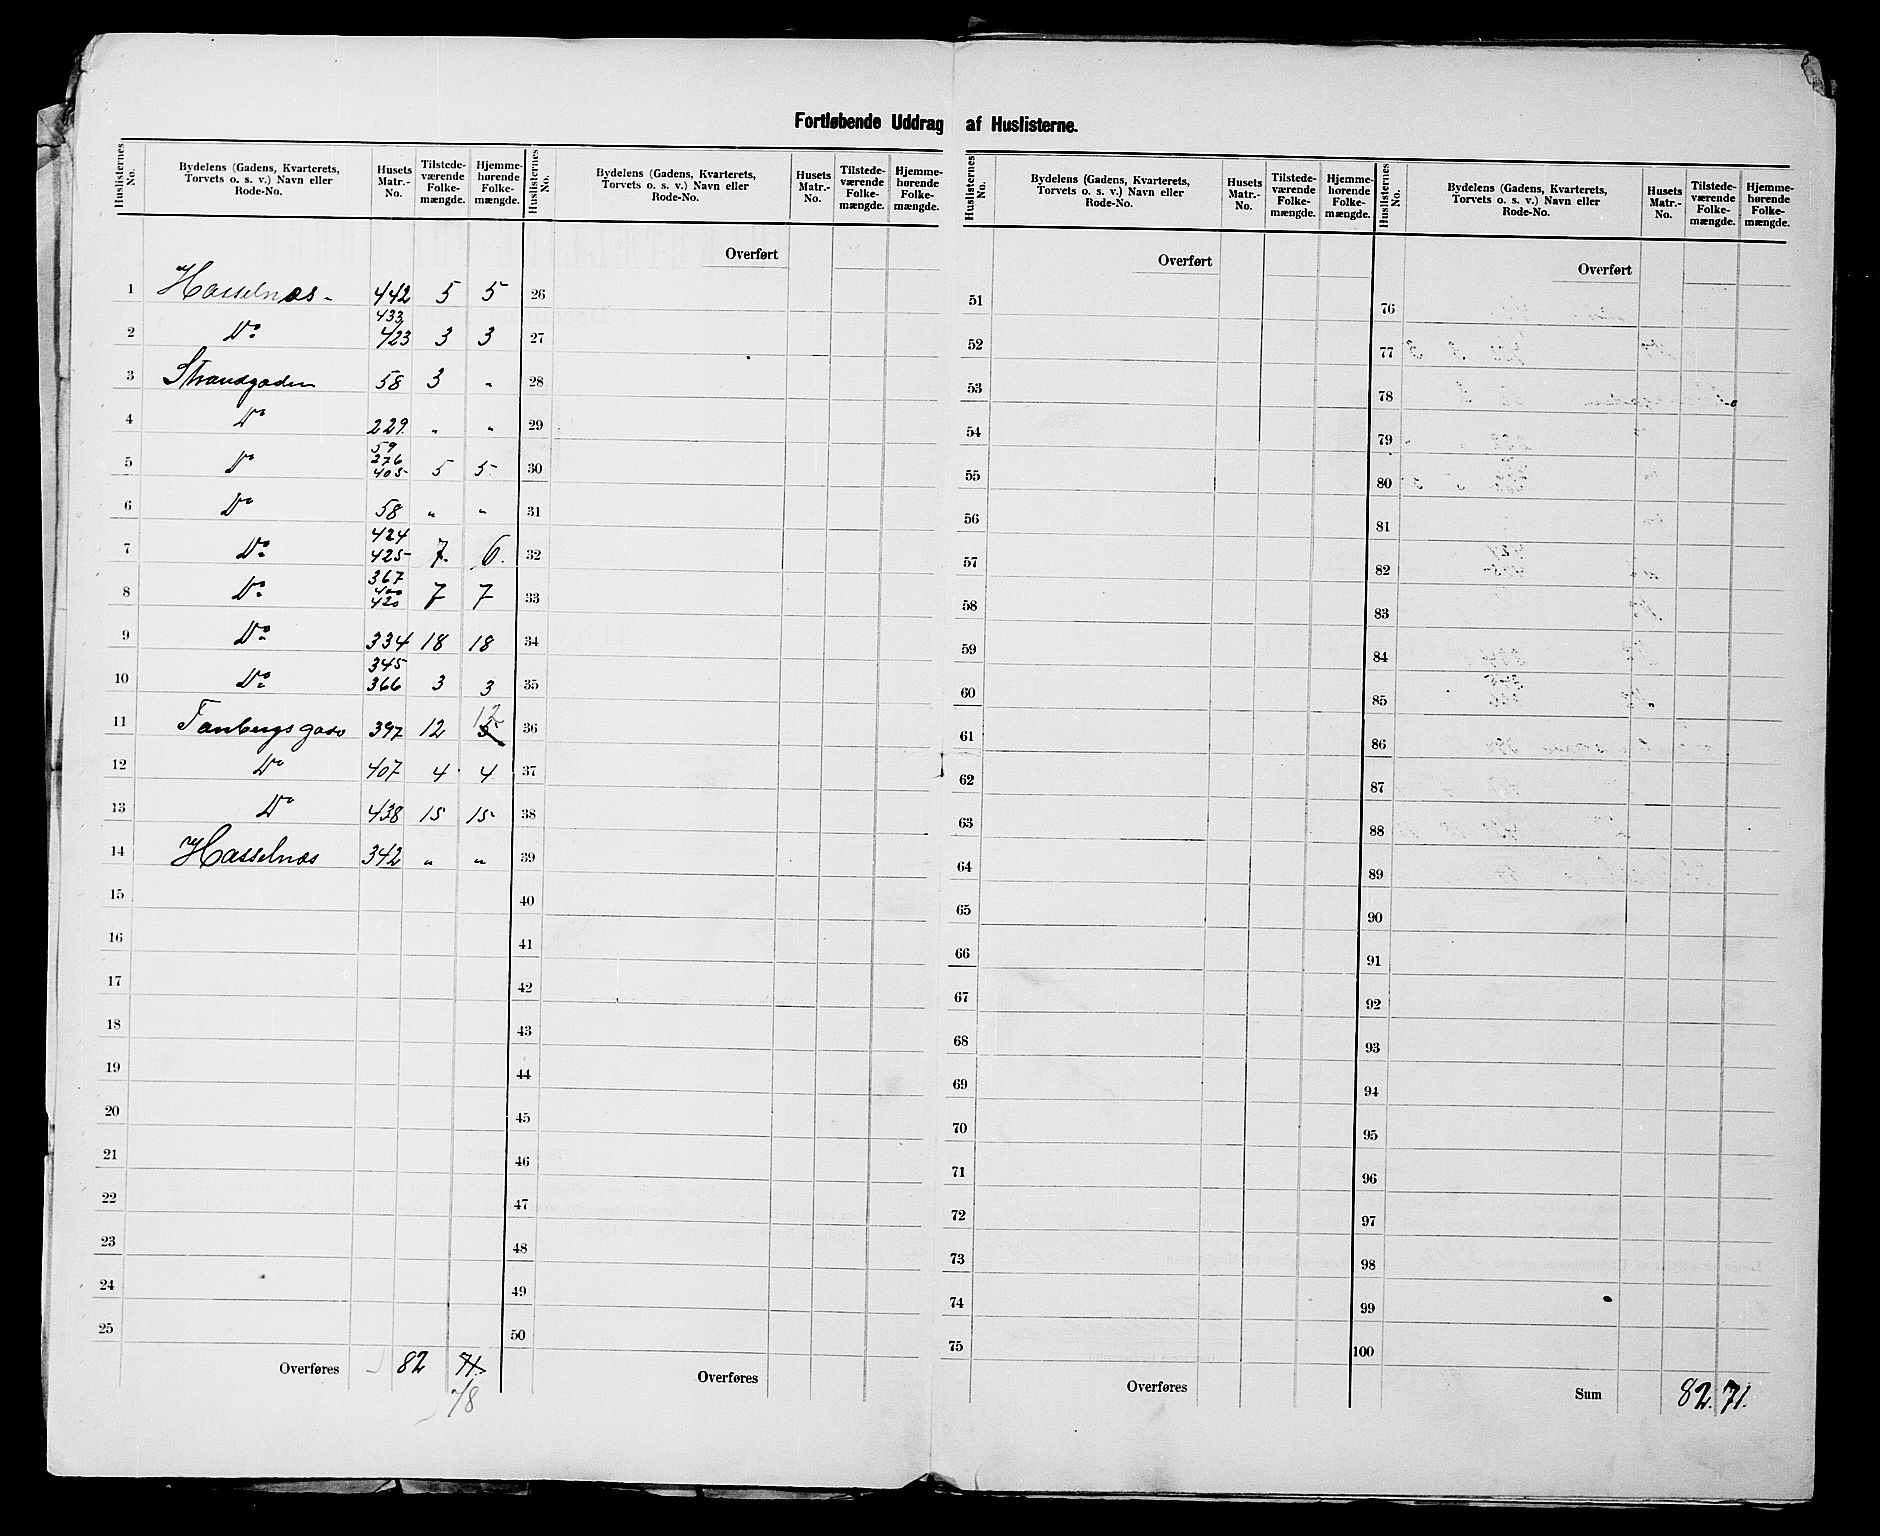 Fortløbende Uddrag af Huslisterne.
Huslisternes No. | Bydelens (Gadens, Kvarterets, Torvets o. s. v.) Navn eller Rode-No. | Husets Matr.-No. | Tilstedeværende Folkemængde. | Hjemmehørende Folkemængde.
1 Hasselnæs - 442 5 5
2 Do 433 423 3 3
3 Strandgaden 58 3 "
4 Do 229 " "
5 Do 59 276 405 5 5
6 Do 58 " "
7 Do 424 425 7 6
8 Do 367 400 420 7 7
9 Do 334 18 18
10 Do 345 366 3 3
11 397 12 5 12
12 Do 407 4 4
13 Do 438 15 15
14 Hasselnæs 342 " "
15
16
17
18
19
20
21
22
23
24
25
Overføres 82 71
78
Huslisternes No. | Bydelens (Gadens, Kvarterets, Torvets o. s. v.) Navn eller Rode-No. | Husets Matr.-No. | Tilstedeværende Folkemængde. | Hjemmehørende Folkemængde.
Overført
26
27
28
29
30
31
32
33
34
35
36
37
38
39
40
41
42
43
44
45
46
47
48
49
50
Overføres
Huslisternes No. | Bydelens (Gadens, Kvarterets, Torvets o. s. v.) Navn eller Rode-No. | Husets Matr.-No. | Tilstedeværende Folkemængde. | Hjemmehørende Folkemængde.
Overført
51
52
53
54
55
56
57
58
59
60
61
62
63
64
65
66
67
68
69
70
71
72
73
74
75
Overføres
Huslisternes No. | Bydelens (Gadens, Kvarterets, Torvets o. s. v.) Navn eller Rode-No. | Husets Matr.-No. | Tilstedeværende Folkemængde. | Hjemmehørende Folkemængde.
Overført
76
77
78
79
80
81
82
83
84
85
86
87
88
89
90
91
92
93
94
95
96
97
98
99
100
Sum 82. 71.